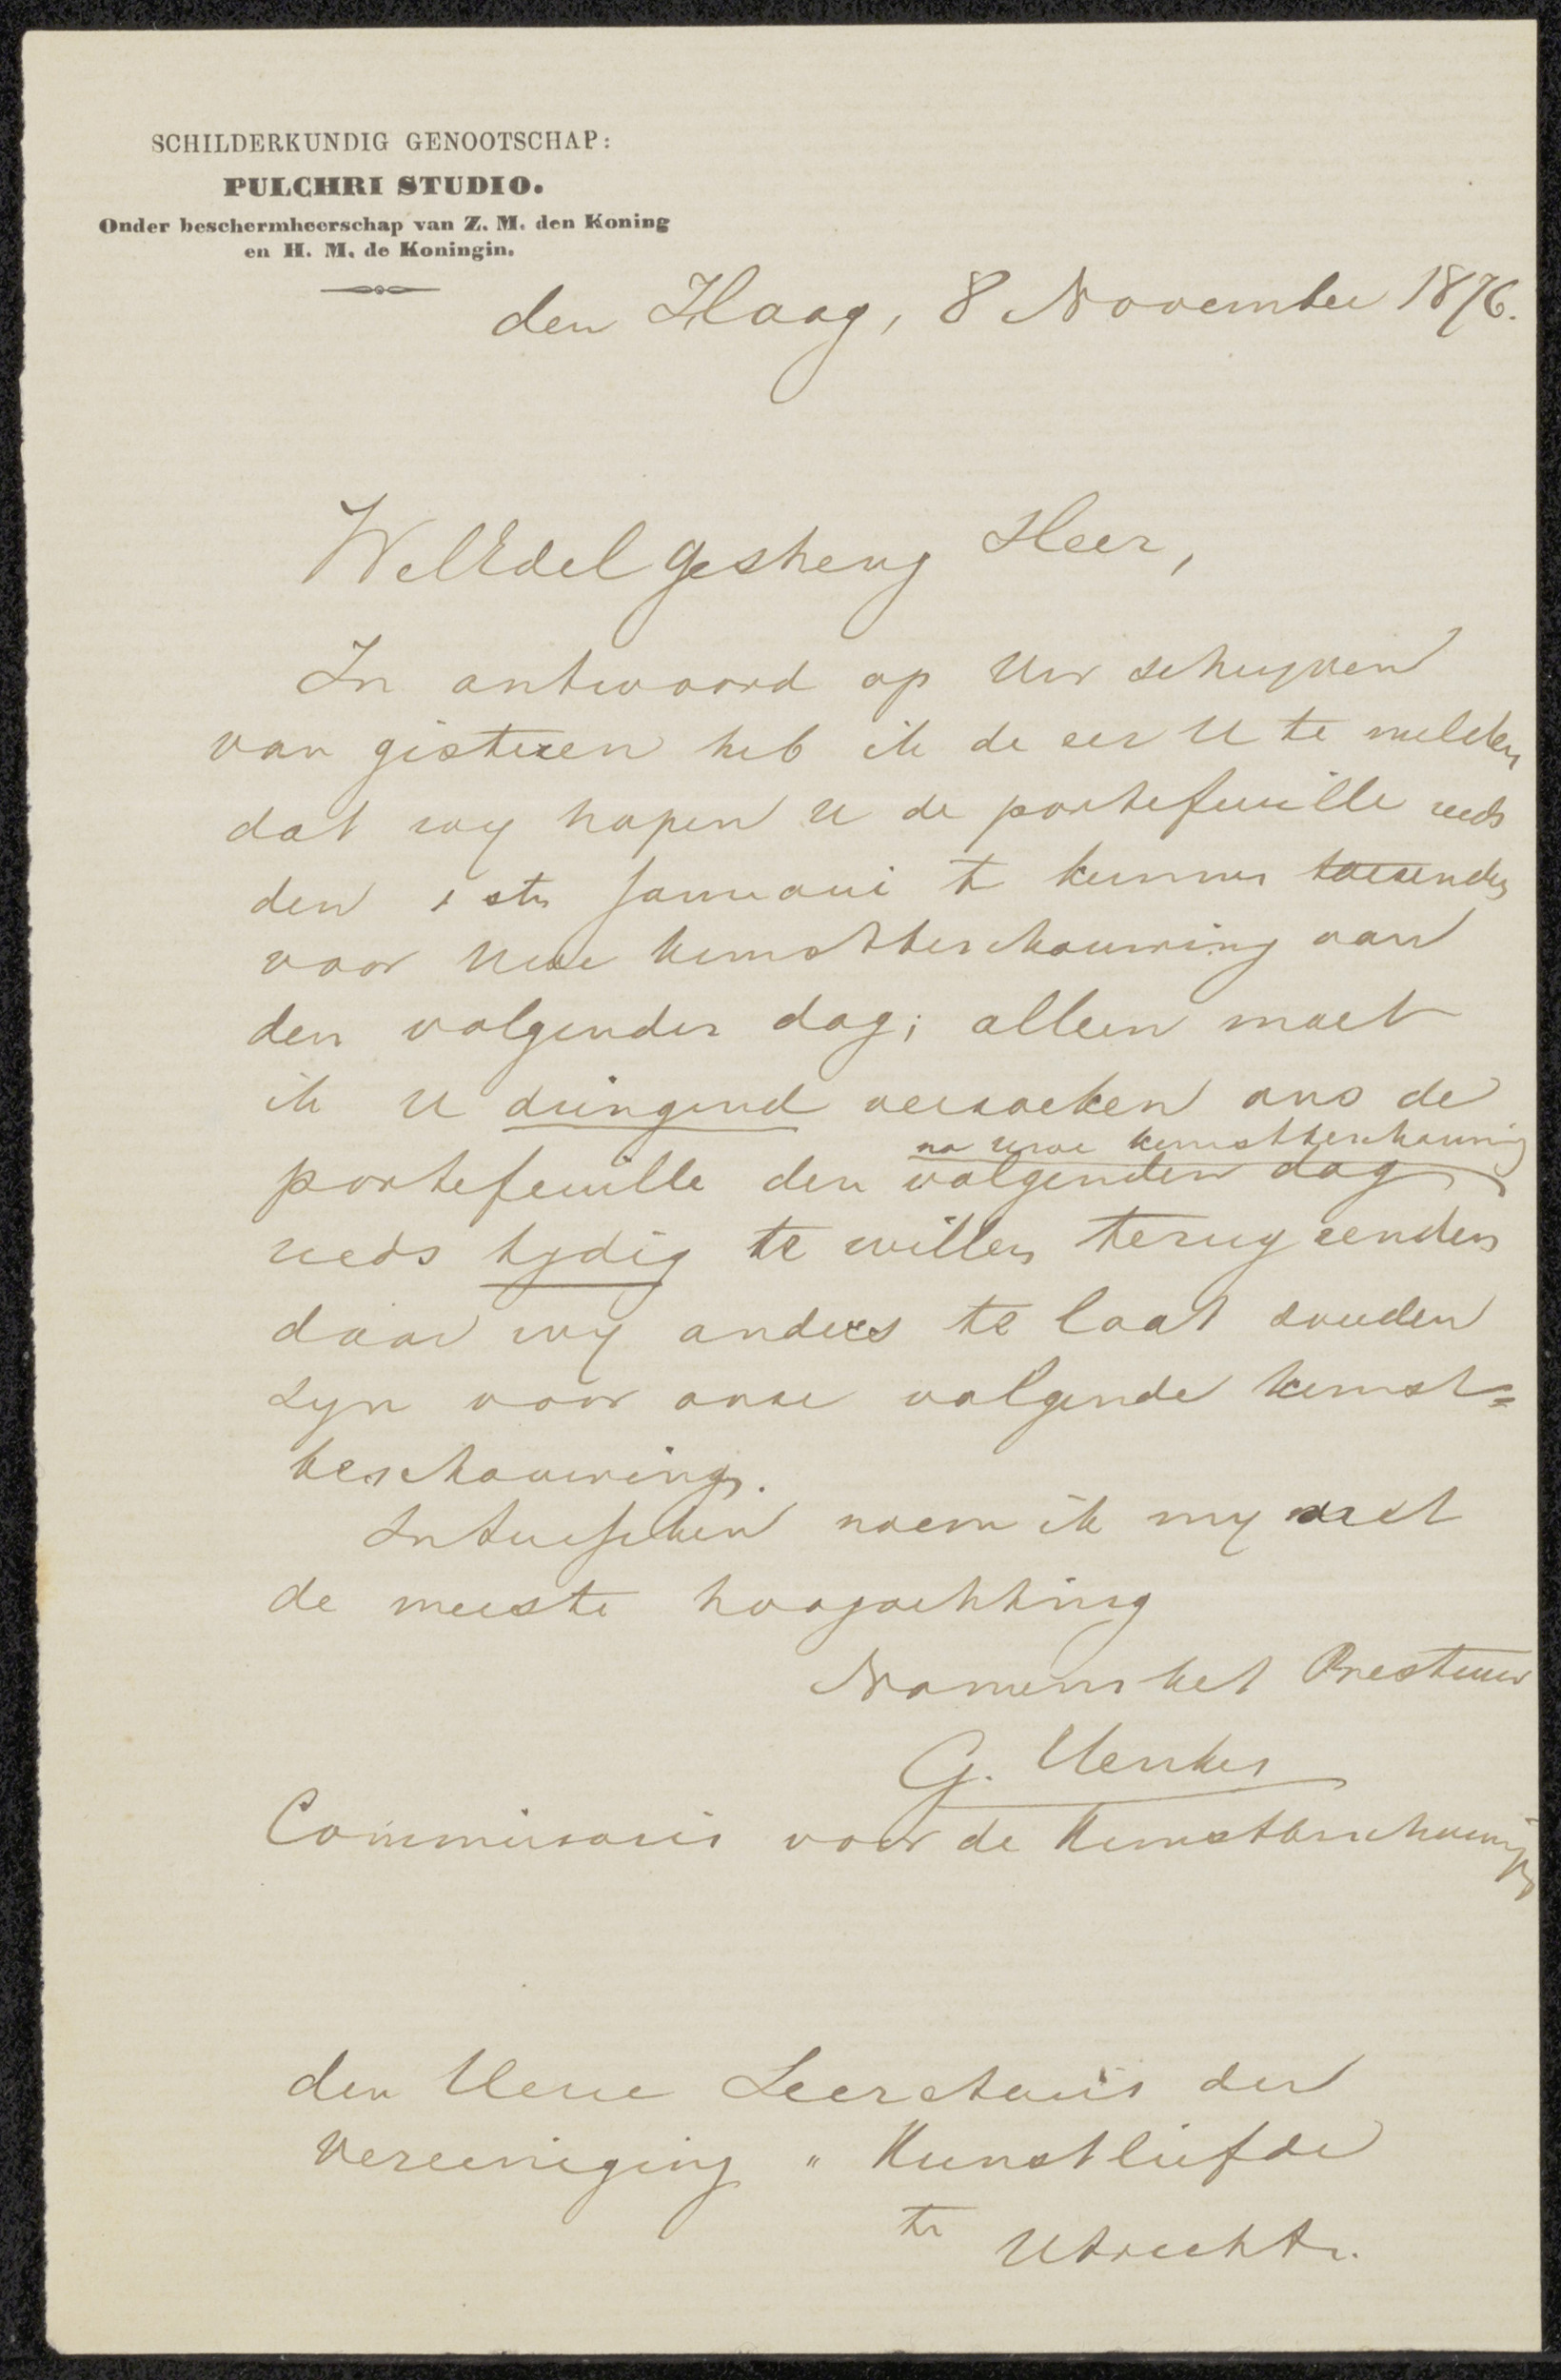 SCHILDERKUNDIG GENOOTSCHAP:
PULCHRI STUDIO.
Onder beschermheerschap van Z. M. den Koning
en H. M. de Koningin.
den Haag, 8 November 1876.
WelEdelgestreng Heer,
In antwoord op Uw schryven
van gisteren heb ik de eer U te melden
dat wy hopen U de portefeuille reeds
den 1 sten Januari te kunnen toezenden
voor Uwe kunstbeschouwing van
den volgenden dag; alleen moet
ik U dringend verzoeken ons de
na uwe kunstbeschouwing
portefeuille den volgenden dag
reeds tydig te willen terug zenden
daar wy anders te laat zouden
zyn voor onze volgende kunst=
beschouwing.
Intusschen noem ik my met
de meeste hoogachting
Namens het Bestuur
G. Henkes
Commissaris voor de Kunstbeschouwingen
den Heere Secretaris der
Vereeniging " Kunstliefde
te Utrecht.